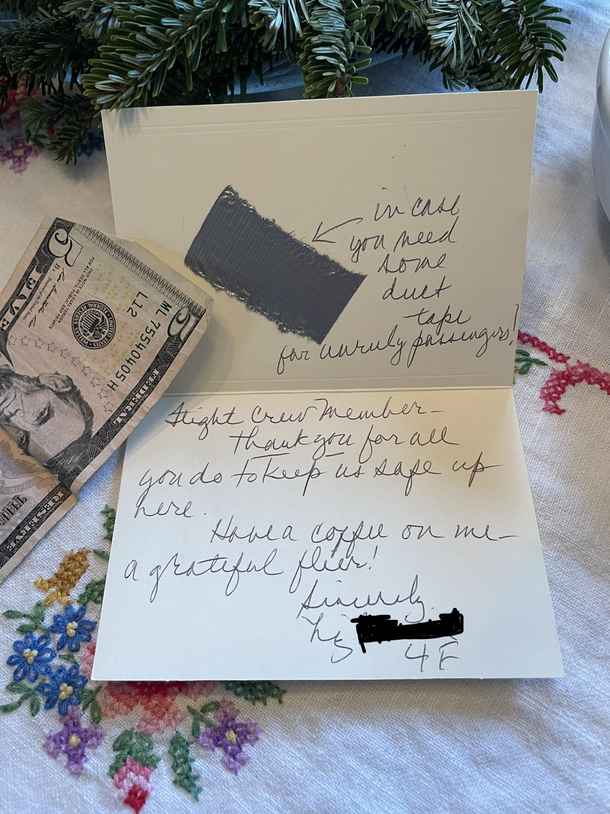 in case
you need
some
duct
tape
for unruly passengers!
Flight Crew Member-
Thank you for all
you do to keep us safe up
here.
Have a coffee on me-
a grateful flier!
Sincerely,
Liz
4F
5
FIVE
ML 75540405 H
L12
FEDERAL RESERVE